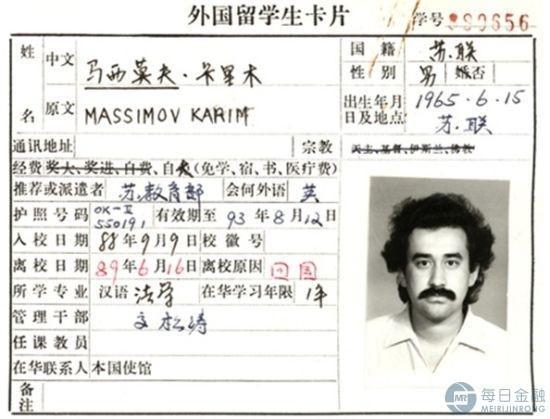 外国留学生卡片
学号 880656
姓名
中文 马西莫夫·卡里木
原文 MASSIMOV KARIM
国籍 苏联
性别 男 婚否
出生年月日及地点: 1965·6·15 苏联
通讯地址 宗教 天主、基督、伊斯兰、佛教
经费 奖大、奖进、自费、自大(免学、宿、书、医疗费)
推荐或派遣者 苏教育部 会何外语 英
护照号码 OK-II 550191 有效期至 93年8月12日
入校日期 88年9月9日 校徽号
离校日期 89年6月16日 离校原因 回国
所学专业 汉语 法学 在华学习年限 1年
管理干部 文松涛
任课教员
在华联系人 本国使馆
备注
MR 每日金融
MEIRIJINRONG